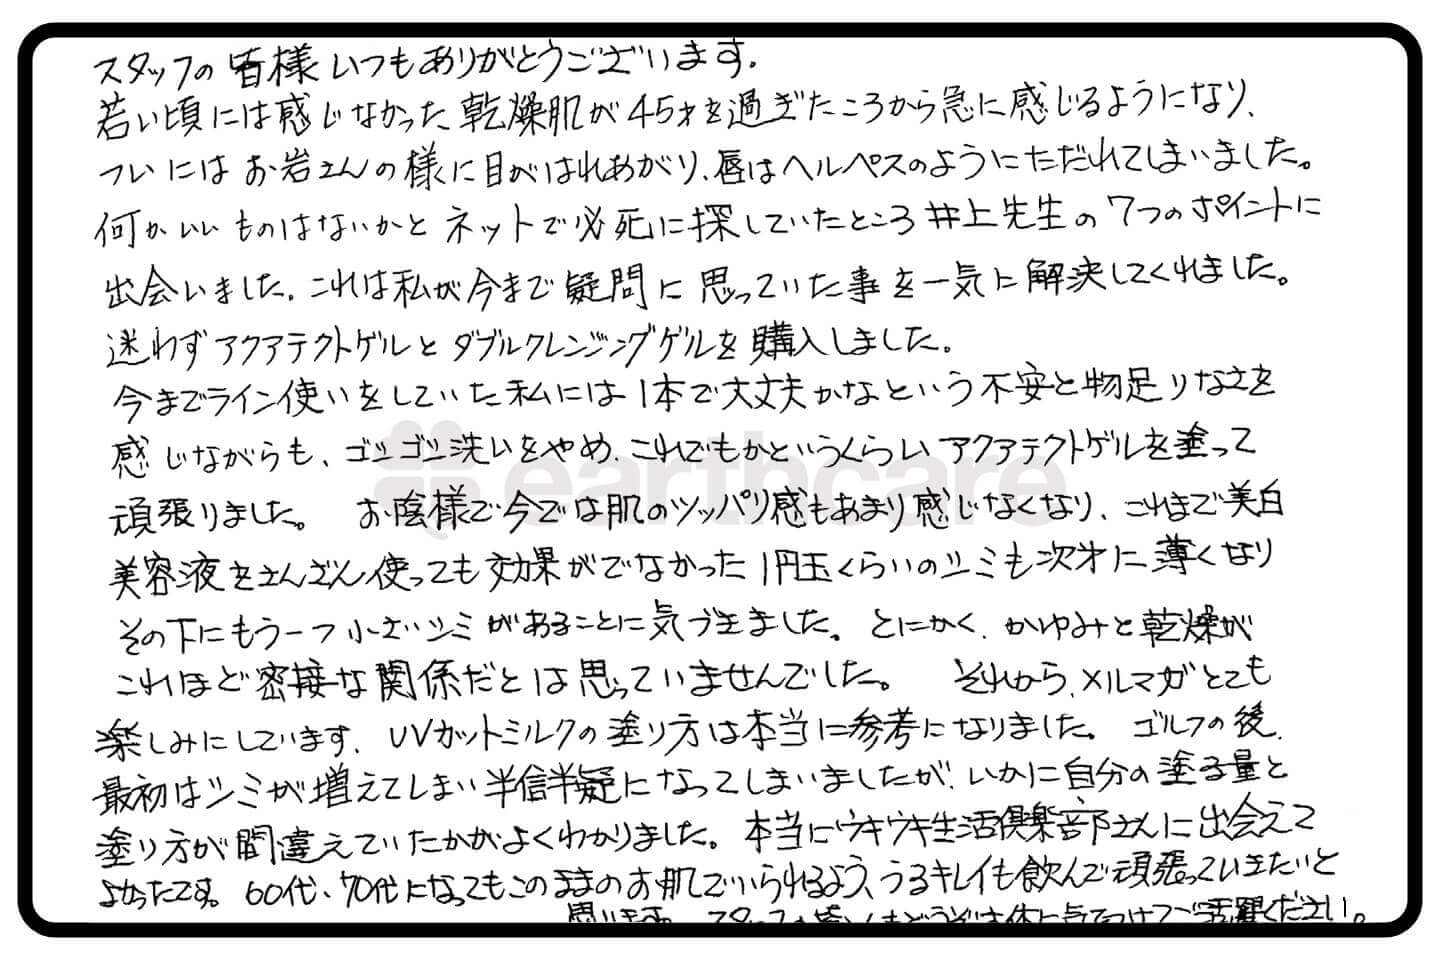 スタッフの皆様いつもありがとうございます。
若い頃には感じなかった乾燥肌が45才を過ぎたころから急に感じるようになり、
ついにはお岩さんの様に目がはれあがり、唇はヘルペスのようにただれてしまいました。
何かいいものはないかとネットで必死に探していたところ井上先生の7つのポイントに
出会いました。これは私が今まで疑問に思っていた事を一気に解決してくれました。
迷わずアクアテクトゲルとダブルクレンジングゲルを購入しました。
今までライン使いをしていた私には1本で大丈夫かなという不安と物足りなさを
感じながらも、ゴシゴシ洗いをやめ、これでもかというくらいアクアテクトゲルを塗って
earthcare
頑張りました。 お陰様で今では肌のツッパリ感もあまり感じなくなり、これまで美白
美容液をさんざん使っても効果がでなかった1円玉くらいのシミも次才に薄くなり
その下にもう一つ小さいシミがあることに気づきました。とにかく、かゆみと乾燥が
これほど密接な関係だとは思っていませんでした。 それから、メルマガとても
楽しみにしています。UVカットミルクの塗り方は本当に参考になりました。 ゴルフの後、
最初はシミが増えてしまい半信半疑になってしまいましたが、いかに自分の塗る量と
塗り方が間違えていたかがよくわかりました。本当にウキウキ生活倶楽部さんに出会えて
よかったです。60代、70代になってもこのままのお肌でいられるよう、うるキレイも飲んで頑張っていきたいと
思います。スタッフの皆さんもどうぞお体に気をつけてご活躍ください。